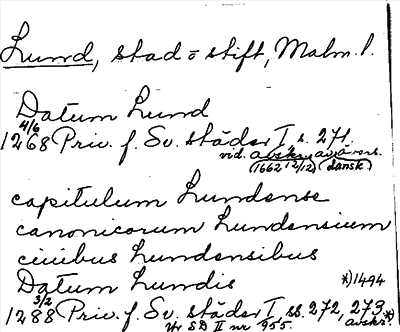 Lund, stad o stift, Malm. l.
Datum Lund
4/6
1268 Priv. f. Sv. städer I s. 271.
vid. avskr. av övers.
(1662 12/12) (dansk)
capitulum Lundense
canonicorum Lundensium
ciuibus Lundensibus
Datum Lundis *) 1494
3/2
1288 Priv. f. Sv. städer I ss. 272, 273 *)
Utr SD II nr 955. avskr.